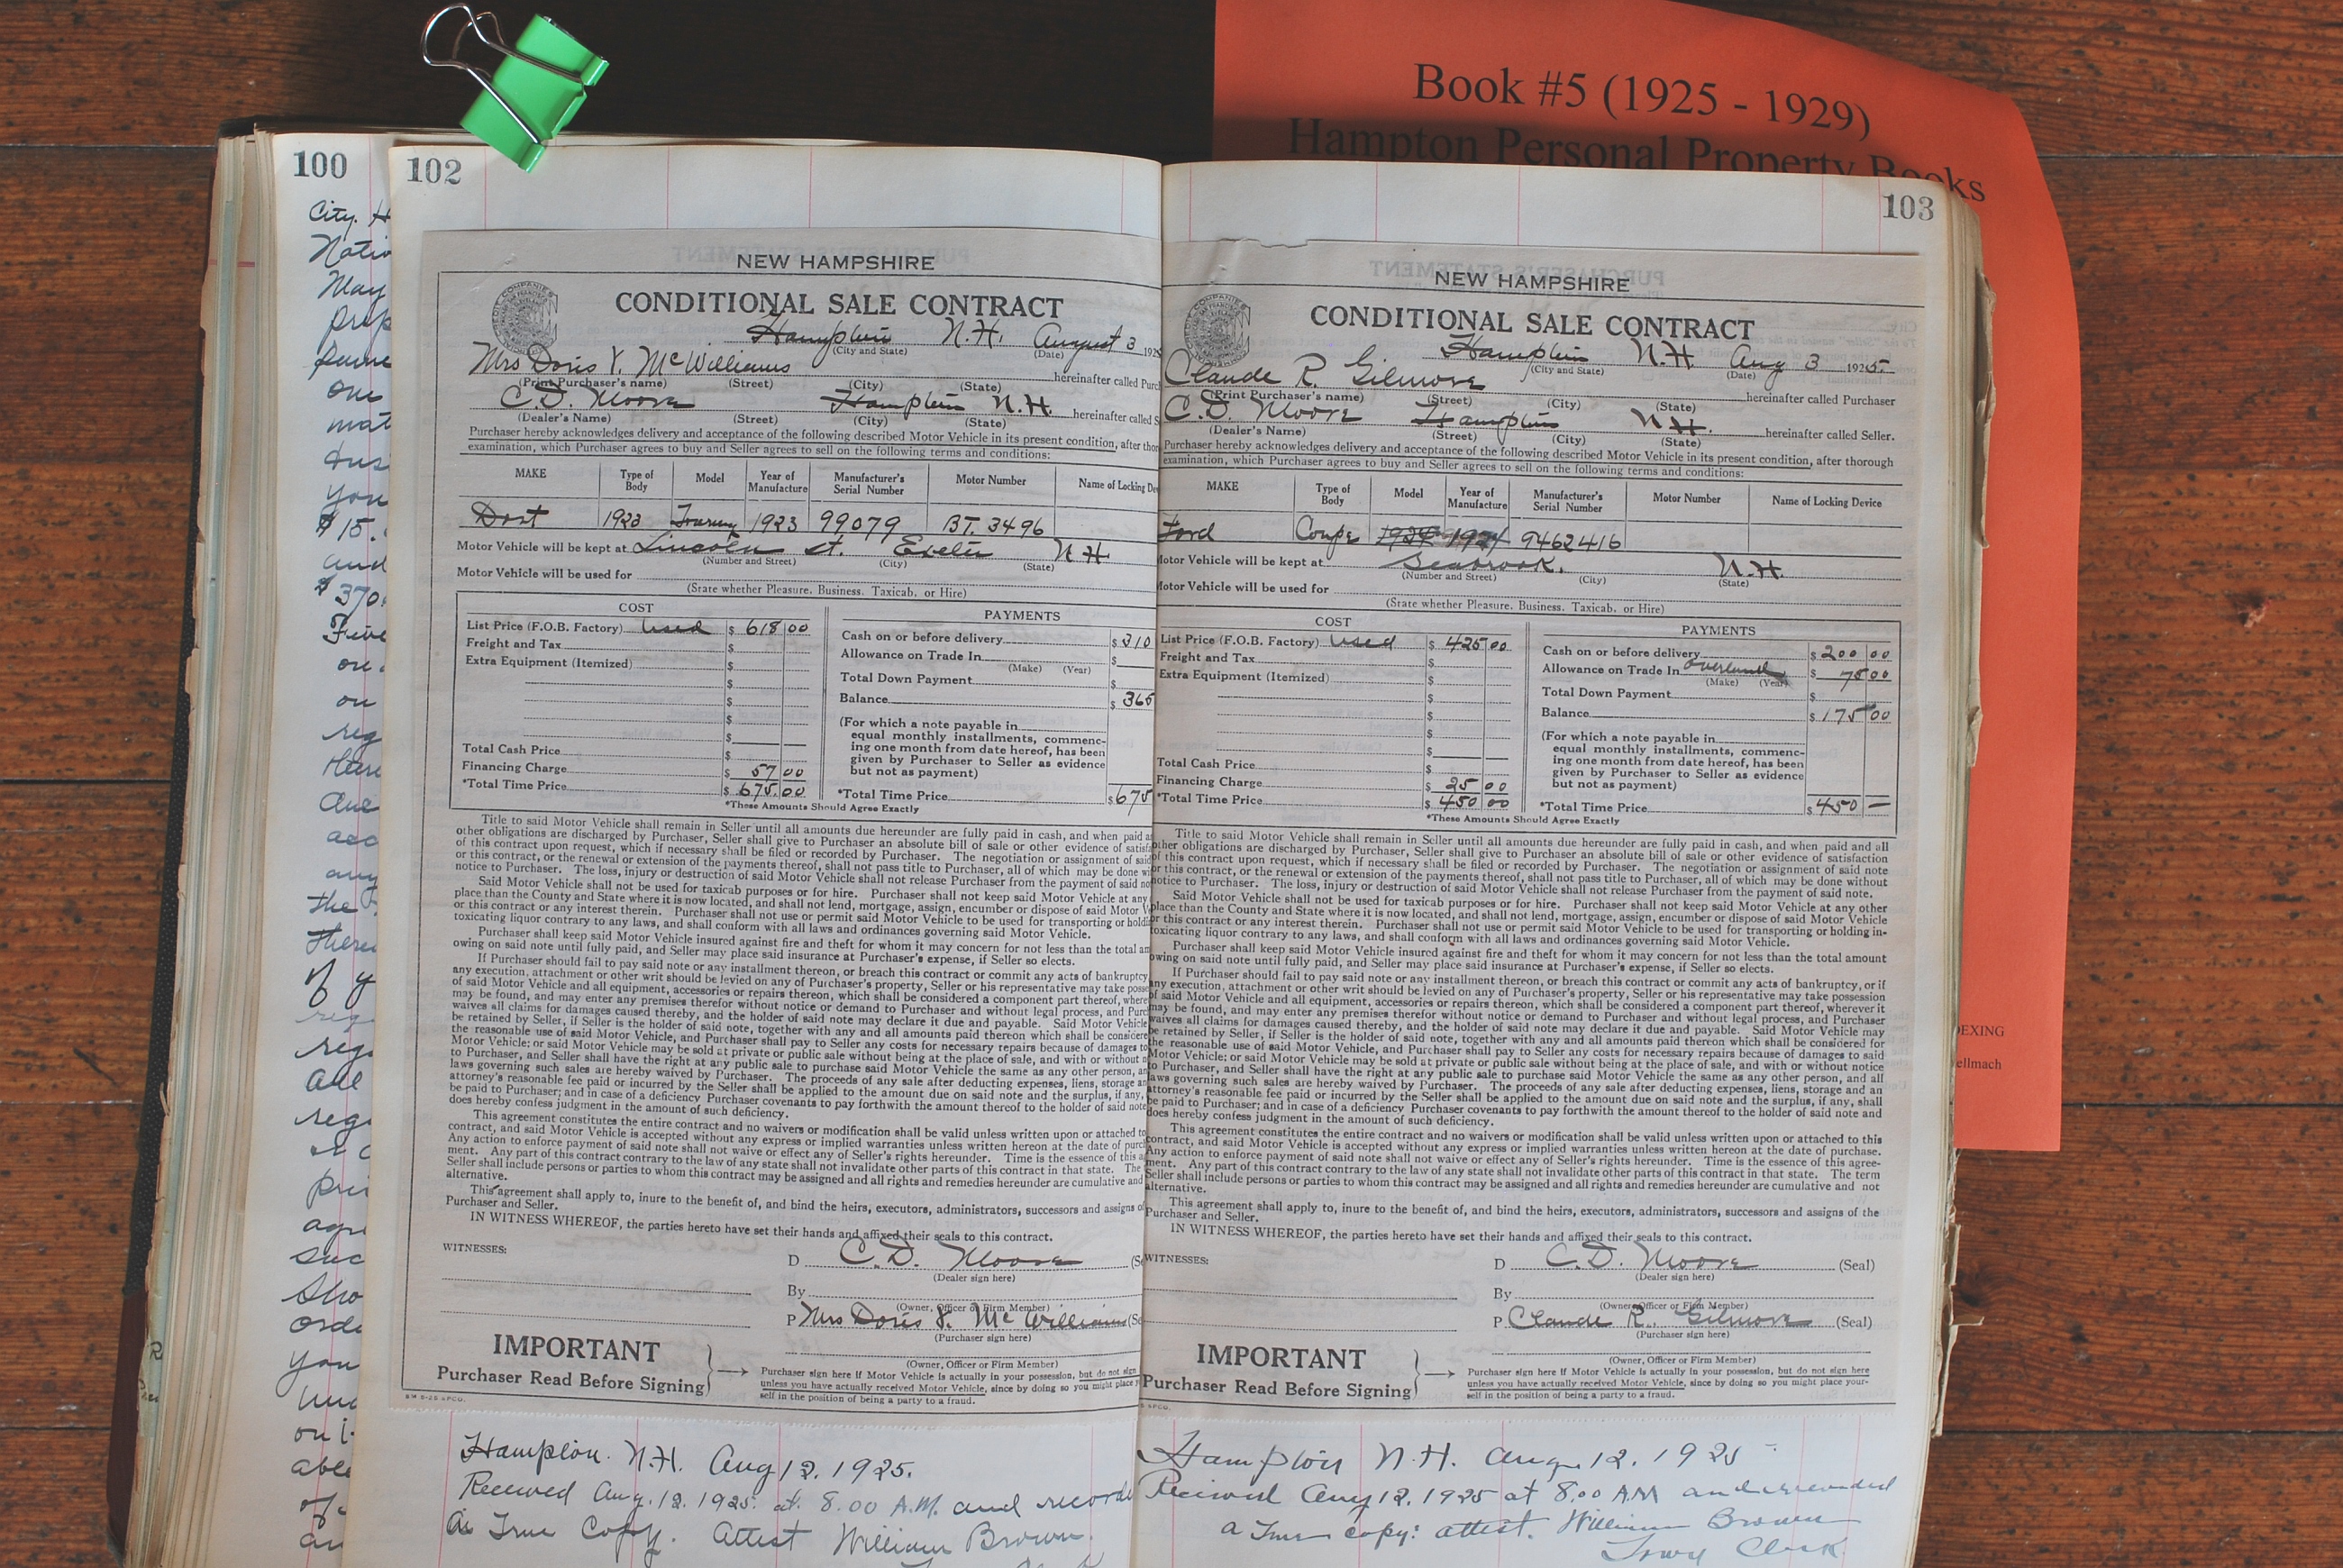 Book #5 (1925 - 1929)
Hampton Personal Property Books
100
City. H
Natio
May
prop
same
one
mat
you
$15.
and
$370.
Five
on
on
reg
Here
any
the
there
of y
reg
reg
are
reg
pri
agre
suc
Sho
orde
you
on t
able
of
an
102
NEW HAMPSHIRE
CONDITIONAL SALE CONTRACT
Hampton N.H. August 3 192
(City and State) (Date)
Mrs Doris V. McWilliams hereinafter called Purch
(Print Purchaser's name) (Street) (City) (State)
C.D. Moore Hampton N.H. hereinafter called S
(Dealer's Name) (Street) (City) (State)
Purchaser hereby acknowledges delivery and acceptance of the following described Motor Vehicle in its present condition, after thor
examination, which Purchaser agrees to buy and Seller agrees to sell on the following terms and conditions:
MAKE Type of Body Model Year of Manufacture Manufacturer's Serial Number Motor Number Name of Locking Dev
Dort 1923 Touring 1923 99079 BT. 3496
Motor Vehicle will be kept at Lincoln St. Exeter N H
(Number and Street) (City) (State)
Motor Vehicle will be used for
(State whether Pleasure, Business, Taxicab, or Hire)
COST
List Price (F.O.B. Factory) Used $ 618 00
Freight and Tax $
Extra Equipment (Itemized) $
$
$
$
$
Total Cash Price $
Financing Charge $ 57 00
*Total Time Price $ 675.00
PAYMENTS
Cash on or before delivery $ 310
Allowance on Trade In $
(Make) (Year)
Total Down Payment $
Balance $ 365
(For which a note payable in
equal monthly installments, commenc-
ing one month from date hereof, has been
given by Purchaser to Seller as evidence
but not as payment)
*Total Time Price $ 675
*These Amounts Should Agree Exactly
Title to said Motor Vehicle shall remain in Seller until all amounts due hereunder are fully paid in cash, and when paid a
other obligations are discharged by Purchaser, Seller shall give to Purchaser an absolute bill of sale or other evidence of satisfa
of this contract upon request, which if necessary shall be filed or recorded by Purchaser. The negotiation or assignment of said
or this contract, or the renewal or extension of the payments thereof, shall not pass title to Purchaser, all of which may be done wi
notice to Purchaser. The loss, injury or destruction of said Motor Vehicle shall not release Purchaser from the payment of said no
Said Motor Vehicle shall not be used for taxicab purposes or for hire. Purchaser shall not keep said Motor Vehicle at any
place than the County and State where it is now located, and shall not lend, mortgage, assign, encumber or dispose of said Motor V
or this contract or any interest therein. Purchaser shall not use or permit said Motor Vehicle to be used for transporting or holdi
toxicating liquor contrary to any laws, and shall conform with all laws and ordinances governing said Motor Vehicle.
Purchaser shall keep said Motor Vehicle insured against fire and theft for whom it may concern for not less than the total am
owing on said note until fully paid, and Seller may place said insurance at Purchaser's expense, if Seller so elects.
If Purchaser should fail to pay said note or any installment thereon, or breach this contract or commit any acts of bankruptcy
any execution, attachment or other writ should be levied on any of Purchaser's property, Seller or his representative may take posse
of said Motor Vehicle and all equipment, accessories or repairs thereon, which shall be considered a component part thereof, where
may be found, and may enter any premises therefor without notice or demand to Purchaser and without legal process, and Purc
waives all claims for damages caused thereby, and the holder of said note may declare it due and payable. Said Motor Vehicle
be retained by Seller, if Seller is the holder of said note, together with any and all amounts paid thereon which shall be considere
the reasonable use of said Motor Vehicle, and Purchaser shall pay to Seller any costs for necessary repairs because of damages to
Motor Vehicle; or said Motor Vehicle may be sold at private or public sale without being at the place of sale, and with or without n
to Purchaser, and Seller shall have the right at any public sale to purchase said Motor Vehicle the same as any other person, an
laws governing such sales are hereby waived by Purchaser. The proceeds of any sale after deducting expenses, liens, storage an
attorney's reasonable fee paid or incurred by the Seller shall be applied to the amount due on said note and the surplus, if any,
be paid to Purchaser; and in case of a deficiency Purchaser covenants to pay forthwith the amount thereof to the holder of said note
does hereby confess judgment in the amount of such deficiency.
This agreement constitutes the entire contract and no waivers or modification shall be valid unless written upon or attached to
contract, and said Motor Vehicle is accepted without any express or implied warranties unless written hereon at the date of purc
Any action to enforce payment of said note shall not waive or effect any of Seller's rights hereunder. Time is the essence of this a
ment. Any part of this contract contrary to the law of any state shall not invalidate other parts of this contract in that state. The
Seller shall include persons or parties to whom this contract may be assigned and all rights and remedies hereunder are cumulative and
alternative.
This agreement shall apply to, inure to the benefit of, and bind the heirs, executors, administrators, successors and assigns of
Purchaser and Seller.
IN WITNESS WHEREOF, the parties hereto have set their hands and affixed their seals to this contract.
WITNESSES:
D C.D. Moore (Se
(Dealer sign here)
By
(Owner, Officer or Firm Member)
P Mrs Doris V. McWilliams (Se
(Purchaser sign here)
(Owner, Officer or Firm Member)
IMPORTANT
Purchaser Read Before Signing
Purchaser sign here if Motor Vehicle is actually in your possession, but do not sign
unless you have actually received Motor Vehicle, since by doing so you might place y
self in the position of being a party to a fraud.
Hampton. N.H. Aug 12. 1925.
Received Aug. 12. 1925. at. 8.00 A.M. and recorde
as True Copy. Attest William Brown.
103
NEW HAMPSHIRE
CONDITIONAL SALE CONTRACT
Hampton N.H. Aug 3 1925.
(City and State) (Date)
Claude R. Gilmore hereinafter called Purchaser
(Print Purchaser's name) (Street) (City) (State)
C.D. Moore Hampton N.H. hereinafter called Seller.
(Dealer's Name) (Street) (City) (State)
Purchaser hereby acknowledges delivery and acceptance of the following described Motor Vehicle in its present condition, after thorough
examination, which Purchaser agrees to buy and Seller agrees to sell on the following terms and conditions:
MAKE Type of Body Model Year of Manufacture Manufacturer's Serial Number Motor Number Name of Locking Device
Ford Coupe 1924 1924 9462416
Motor Vehicle will be kept at Seabrook. N.H.
(Number and Street) (City) (State)
Motor Vehicle will be used for
(State whether Pleasure, Business, Taxicab, or Hire)
COST
List Price (F.O.B. Factory) Used $ 425 00
Freight and Tax $
Extra Equipment (Itemized) $
$
$
$
$
Total Cash Price $
Financing Charge $ 25 00
*Total Time Price $ 450 00
PAYMENTS
Cash on or before delivery $ 200 00
Allowance on Trade In Overland $ 75 00
(Make) (Year)
Total Down Payment $
Balance $ 175 00
(For which a note payable in
equal monthly installments, commenc-
ing one month from date hereof, has been
given by Purchaser to Seller as evidence
but not as payment)
*Total Time Price $ 450 —
*These Amounts Should Agree Exactly
Title to said Motor Vehicle shall remain in Seller until all amounts due hereunder are fully paid in cash, and when paid and all
other obligations are discharged by Purchaser, Seller shall give to Purchaser an absolute bill of sale or other evidence of satisfaction
of this contract upon request, which if necessary shall be filed or recorded by Purchaser. The negotiation or assignment of said note
or this contract, or the renewal or extension of the payments thereof, shall not pass title to Purchaser, all of which may be done without
notice to Purchaser. The loss, injury or destruction of said Motor Vehicle shall not release Purchaser from the payment of said note.
Said Motor Vehicle shall not be used for taxicab purposes or for hire. Purchaser shall not keep said Motor Vehicle at any other
place than the County and State where it is now located, and shall not lend, mortgage, assign, encumber or dispose of said Motor Vehicle
or this contract or any interest therein. Purchaser shall not use or permit said Motor Vehicle to be used for transporting or holding in-
toxicating liquor contrary to any laws, and shall conform with all laws and ordinances governing said Motor Vehicle.
Purchaser shall keep said Motor Vehicle insured against fire and theft for whom it may concern for not less than the total amount
owing on said note until fully paid, and Seller may place said insurance at Purchaser's expense, if Seller so elects.
If Purchaser should fail to pay said note or any installment thereon, or breach this contract or commit any acts of bankruptcy, or if
any execution, attachment or other writ should be levied on any of Purchaser's property, Seller or his representative may take possession
of said Motor Vehicle and all equipment, accessories or repairs thereon, which shall be considered a component part thereof, wherever it
may be found, and may enter any premises therefor without notice or demand to Purchaser and without legal process, and Purchaser
waives all claims for damages caused thereby, and the holder of said note may declare it due and payable. Said Motor Vehicle may
be retained by Seller, if Seller is the holder of said note, together with any and all amounts paid thereon which shall be considered for
the reasonable use of said Motor Vehicle, and Purchaser shall pay to Seller any costs for necessary repairs because of damages to said
Motor Vehicle; or said Motor Vehicle may be sold at private or public sale without being at the place of sale, and with or without notice
to Purchaser, and Seller shall have the right at any public sale to purchase said Motor Vehicle the same as any other person, and all
laws governing such sales are hereby waived by Purchaser. The proceeds of any sale after deducting expenses, liens, storage and an
attorney's reasonable fee paid or incurred by the Seller shall be applied to the amount due on said note and the surplus, if any, shall
be paid to Purchaser; and in case of a deficiency Purchaser covenants to pay forthwith the amount thereof to the holder of said note and
does hereby confess judgment in the amount of such deficiency.
This agreement constitutes the entire contract and no waivers or modification shall be valid unless written upon or attached to this
contract, and said Motor Vehicle is accepted without any express or implied warranties unless written hereon at the date of purchase.
Any action to enforce payment of said note shall not waive or effect any of Seller's rights hereunder. Time is the essence of this agree-
ment. Any part of this contract contrary to the law of any state shall not invalidate other parts of this contract in that state. The term
Seller shall include persons or parties to whom this contract may be assigned and all rights and remedies hereunder are cumulative and not
alternative.
This agreement shall apply to, inure to the benefit of, and bind the heirs, executors, administrators, successors and assigns of the
Purchaser and Seller.
IN WITNESS WHEREOF, the parties hereto have set their hands and affixed their seals to this contract.
WITNESSES:
D C.D. Moore (Seal)
(Dealer sign here)
By
(Owner, Officer or Firm Member)
P Claude R. Gilmore (Seal)
(Purchaser sign here)
(Owner, Officer or Firm Member)
IMPORTANT
Purchaser Read Before Signing
Purchaser sign here if Motor Vehicle is actually in your possession, but do not sign here
unless you have actually received Motor Vehicle, since by doing so you might place your-
self in the position of being a party to a fraud.
Hampton N.H. Aug. 12. 1925
Received Aug 12. 1925 at 8.00 AM and recorded
a True copy: attest. William Brown
Town Clerk.
DEXING
ellmach